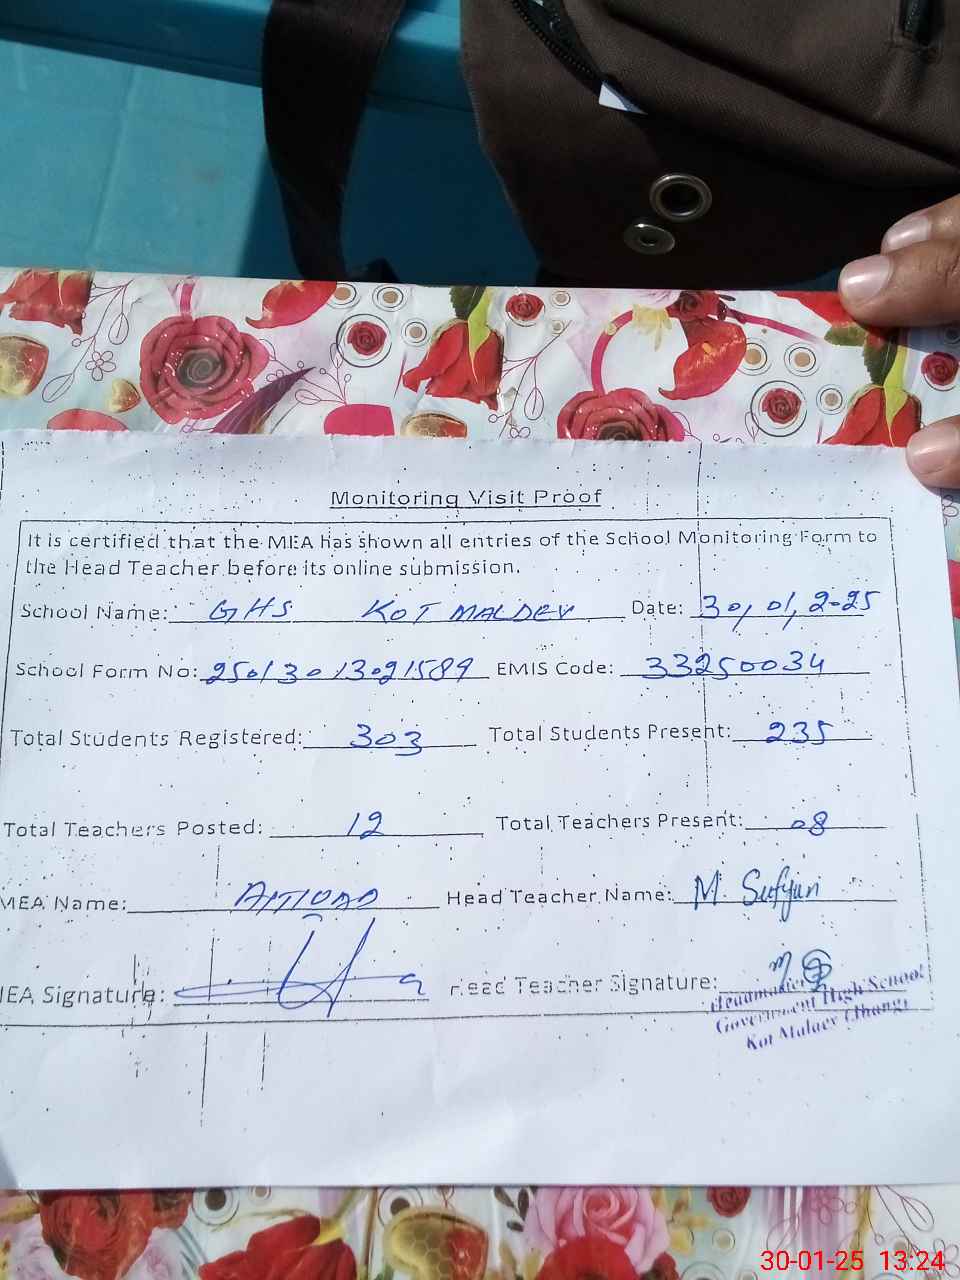 Monitoring Visit Proof
It is certified that the MEA has shown all entries of the School Monitoring Form to
the Head Teacher before its online submission.
School Name: GHS KOT MALDEV Date: 30, 01, 2025
School Form No: 25013013021589 EMIS Code: 33250034
Total Students Registered: 303 Total Students Present: 235
Total Teachers Posted: 12 Total Teachers Present: 08
MEA Name: Head Teacher Name: M. Sufyan
MEA Signature: Head Teacher Signature:
Headmaster
Government High School
Kot Maldev (Jhang)
30-01-25 13:24